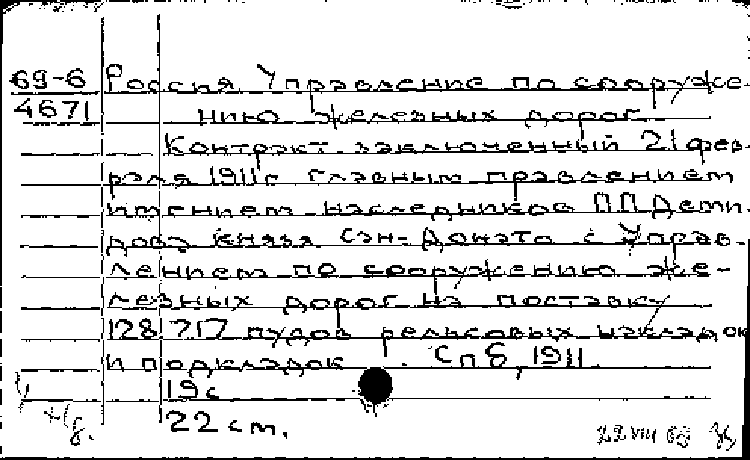 69-6 Россия Управление по сооруже-
4671 нию железных дорог.
Контракт заключенный 21 фев-
раля 1911г главным правлением
имением наследников П.П.Деми-
дова князя Сан-Донато с Управ-
лением по сооружению же-
лезных дорог на поставку
128.717 пудов рельсовых накладок
и подкладок. Спб, 1911.
19с
22 см.
22 VIII 69